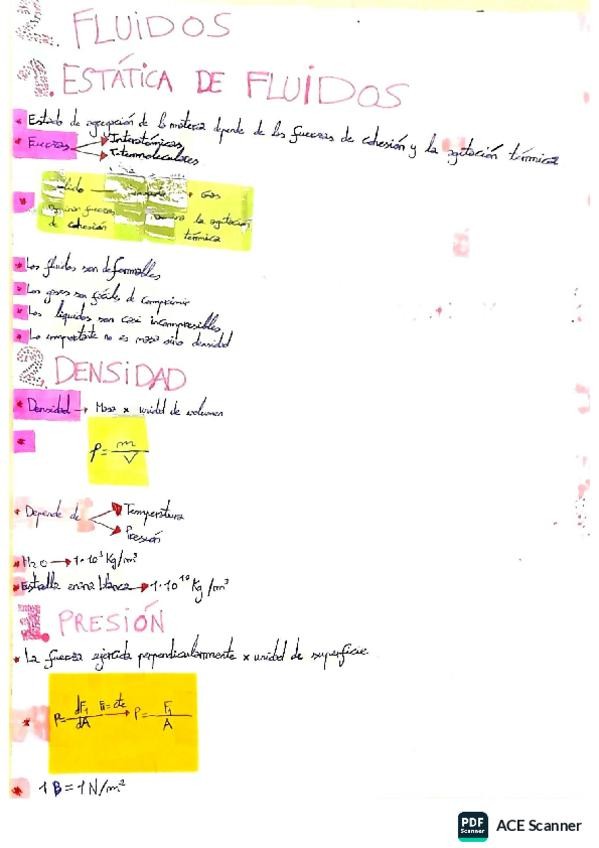 2. FLUIDOS
1. ESTÁTICA DE FLUIDOS
* Estado de agregación de la materia depende de las fuerzas de cohesión y la agitación térmica
* Fuerzas → Interatómicas
→ Intermoleculares
Gas
fuerzas la agitación
de cohesión térmica
* Los fluidos son deformables
* Los gases son fáciles de comprimir
* Los líquidos son casi incompresibles
* Lo importante no es masa sino densidad
2. DENSIDAD
* Densidad → Masa x unidad de volumen
* ρ = m/V
* Depende de → Temperatura
→ Presión
* H2O → 1·10³ Kg/m³
* Estrella enana blanca → 1·10¹⁰ Kg/m³
3. PRESIÓN
* La fuerza ejercida perpendicularmente x unidad de superficie
* P = dF⊥/dA → P = F⊥/A
* 1 B = 1 N/m²
PDF Scanner ACE Scanner